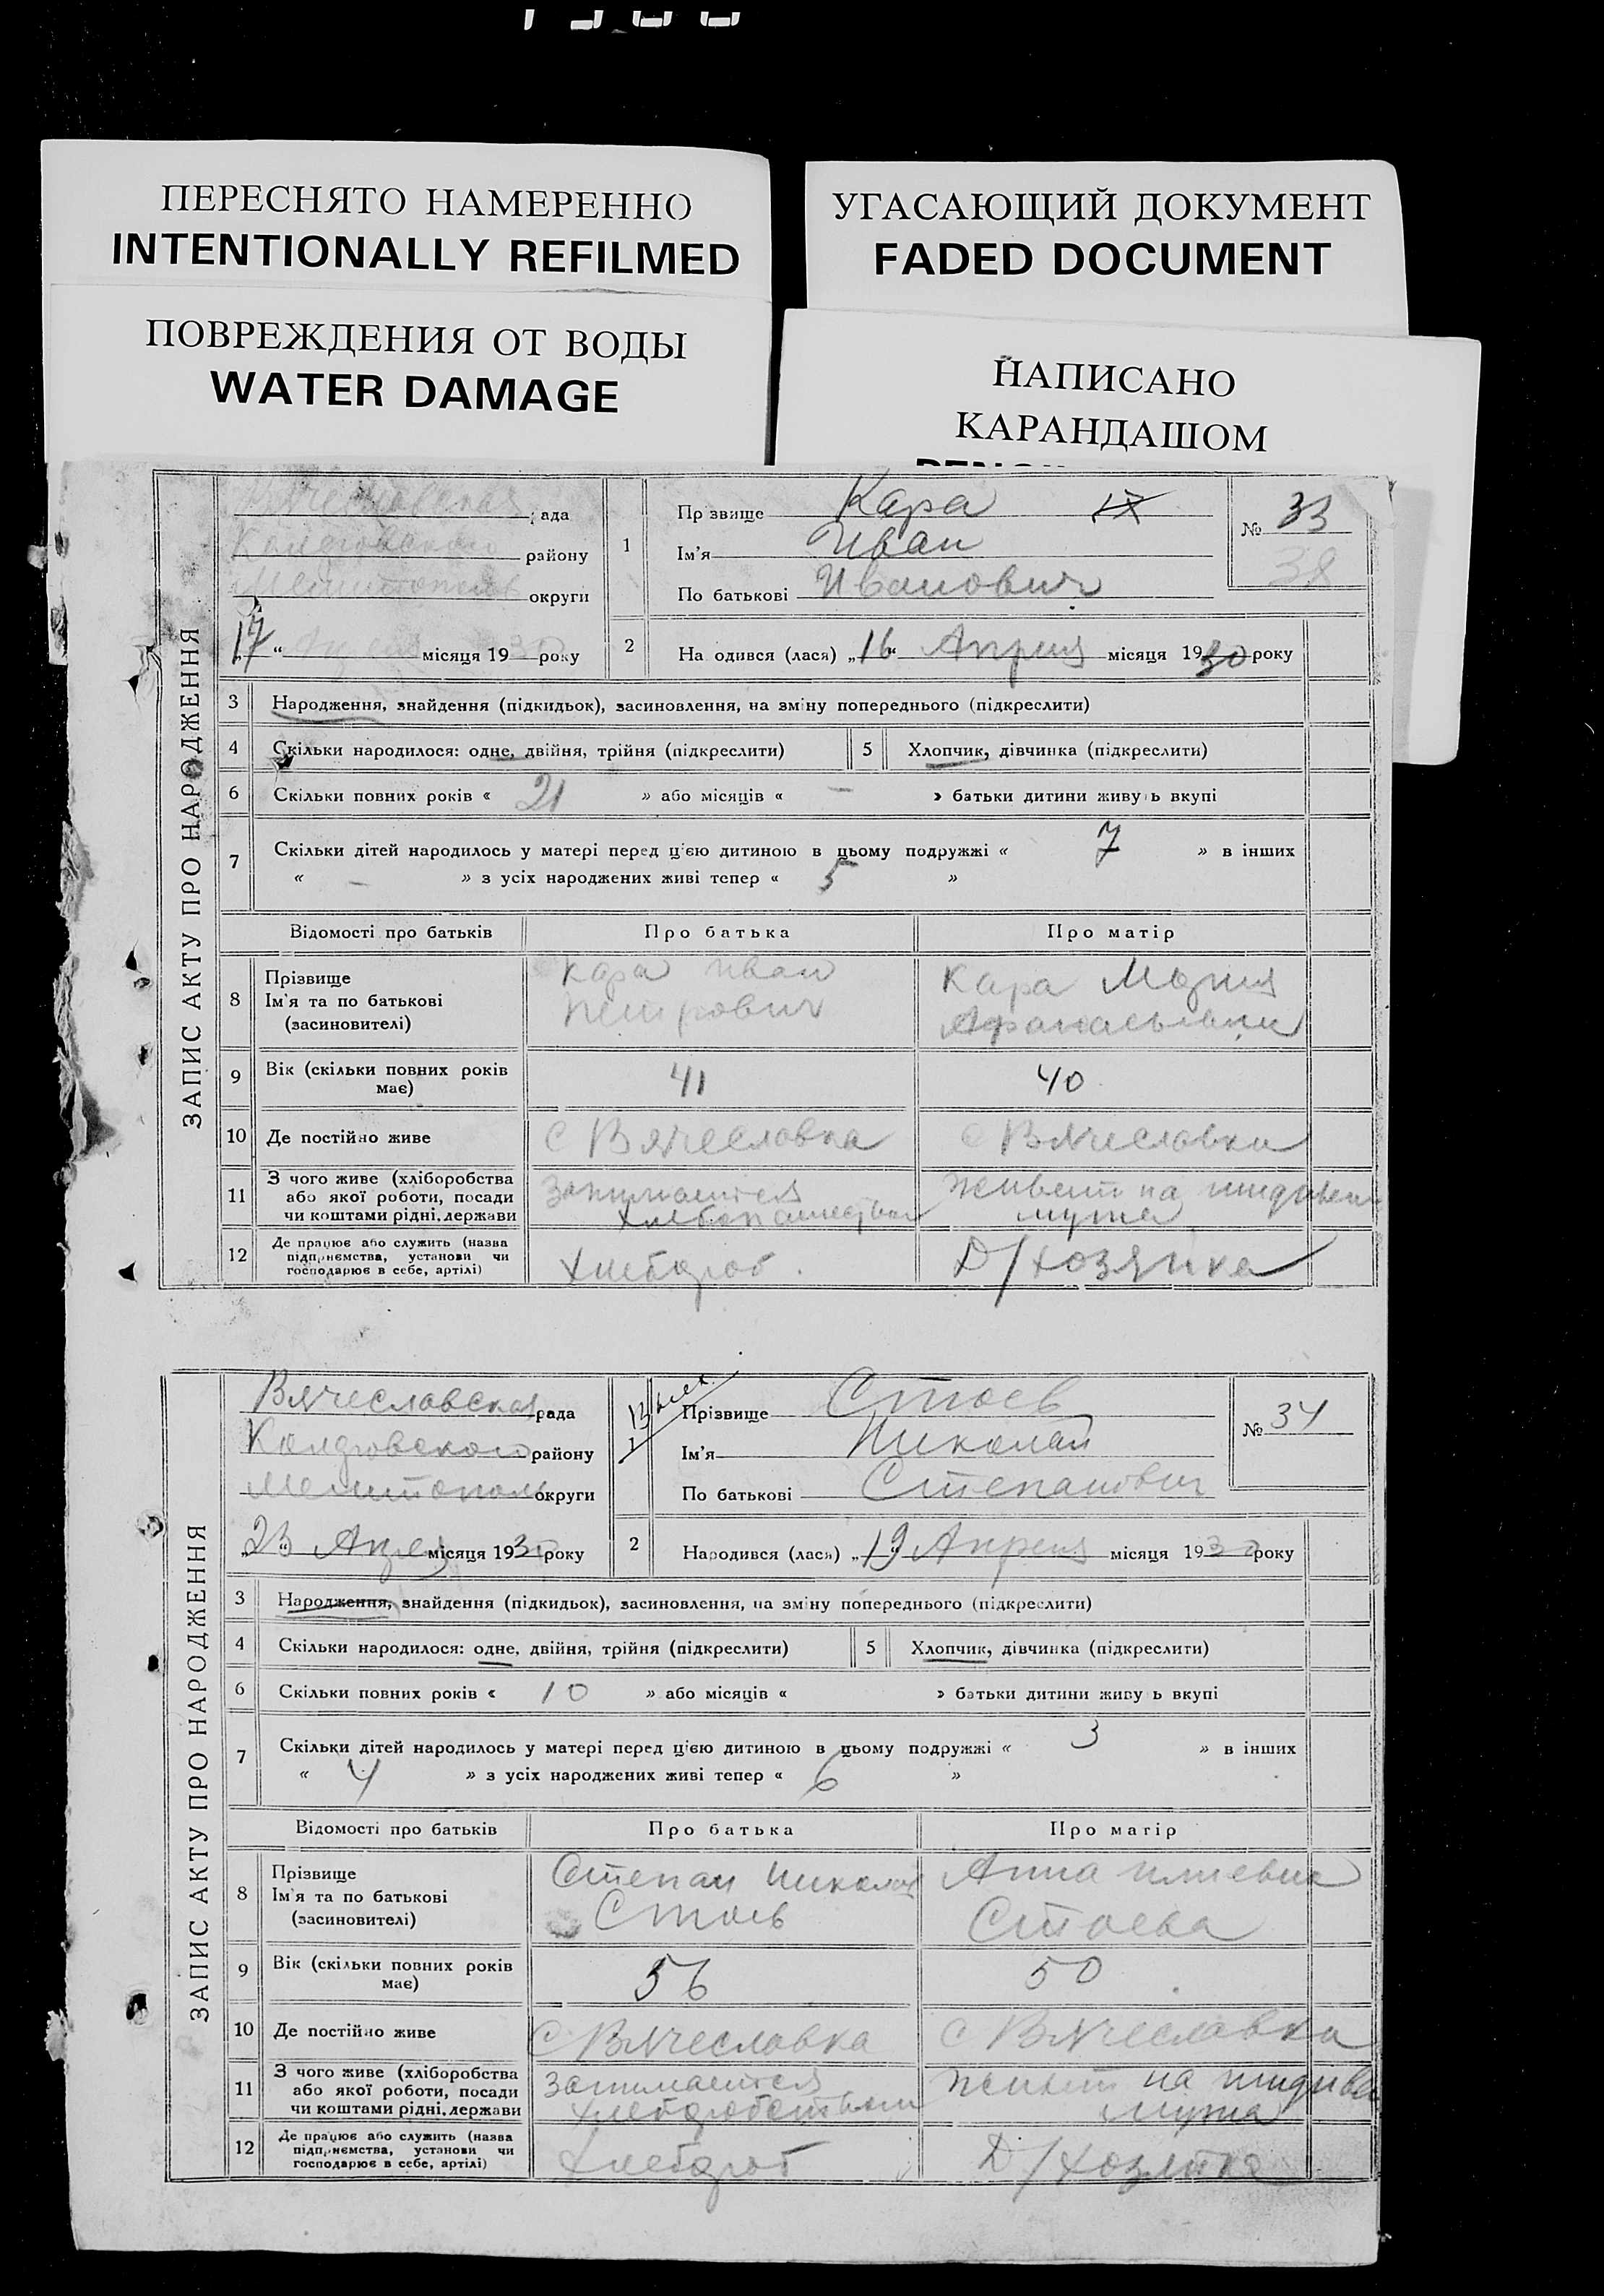 ПЕРЕСНЯТО НАМЕРЕННО
INTENTIONALLY REFILMED
УГАСАЮЩИЙ ДОКУМЕНТ
FADED DOCUMENT
ПОВРЕЖДЕНИЯ ОТ ВОДЫ
WATER DAMAGE
НАПИСАНО
КАРАНДАШОМ
ЗАПИС АКТУ ПРО НАРОДЖЕННЯ
рада
району
округи
„17“ місяця 1930 року
1
Прізвище Кара
Ім'я Иван
По батькові Иванович
№ 33
38
2 Народився (лася) „16“ Апреля місяця 1930 року
3 Народження, знайдення (підкидьок), засиновлення, на зміну попереднього (підкреслити)
4 Скільки народилося: одне, двійня, трійня (підкреслити) 5 Хлопчик, дівчинка (підкреслити)
6 Скільки повних років « 21 » або місяців « — » батьки дитини живуть вкупі
7 Скільки дітей народилось у матері перед цією дитиною в цьому подружжі « 7 » в інших
« — » з усіх народжених живі тепер « 5 »
Відомості про батьків Про батька Про матір
8 Прізвище
Ім'я та по батькові
(засиновителі)
Кара Иван
Петрович
Кара Мария
9 Вік (скільки повних років
має)
41 40
10 Де постійно живе с Вячеславка с Вячеславка
11 З чого живе (хліборобства
або якої роботи, посади
чи коштами рідні, держави
занимается
мужа
12 Де працює або служить (назва
підприємства, установи чи
господарює в себе, артілі)
Хлебороб. Д/хозяйка
ЗАПИС АКТУ ПРО НАРОДЖЕННЯ
Вячеславская рада
району
округи
„23“ місяця 1930 року
1
Прізвище Стоев
Ім'я Николай
По батькові Степанович
№ 34
2 Народився (лася) „19“ Апреля місяця 1930 року
3 Народження, знайдення (підкидьок), засиновлення, на зміну попереднього (підкреслити)
4 Скільки народилося: одне, двійня, трійня (підкреслити) 5 Хлопчик, дівчинка (підкреслити)
6 Скільки повних років « 10 » або місяців « » батьки дитини живу ь вкупі
7 Скільки дітей народилось у матері перед цією дитиною в цьому подружжі « 3 » в інших
« 4 » з усіх народжених живі тепер « 6 »
Відомості про батьків Про батька Про матір
8 Прізвище
Ім'я та по батькові
(засиновителі)
Степан
Стоев
Анна Илиевна
Стоева
9 Вік (скільки повних років
має)
56 50
10 Де постійно живе с Вячеславка с Вячеславка
11 З чого живе (хліборобства
або якої роботи, посади
чи коштами рідні, держави
занимается
мужа
12 Де працює або служить (назва
підприємства, установи чи
господарює в себе, артілі)
Хлебороб Д/хозяйка